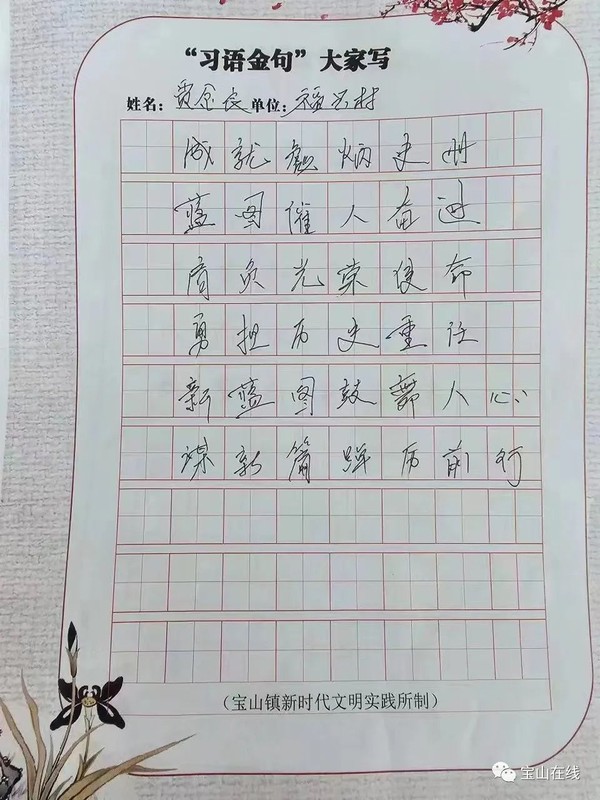 “习语金句”大家写
姓名：贾金良 单位：福兴村
成就彪炳史册
蓝图催人奋进
肩负光荣使命
勇担历史重任
新蓝图鼓舞人心
谋新篇踔厉前行
（宝山镇新时代文明实践所制）
宝山在线